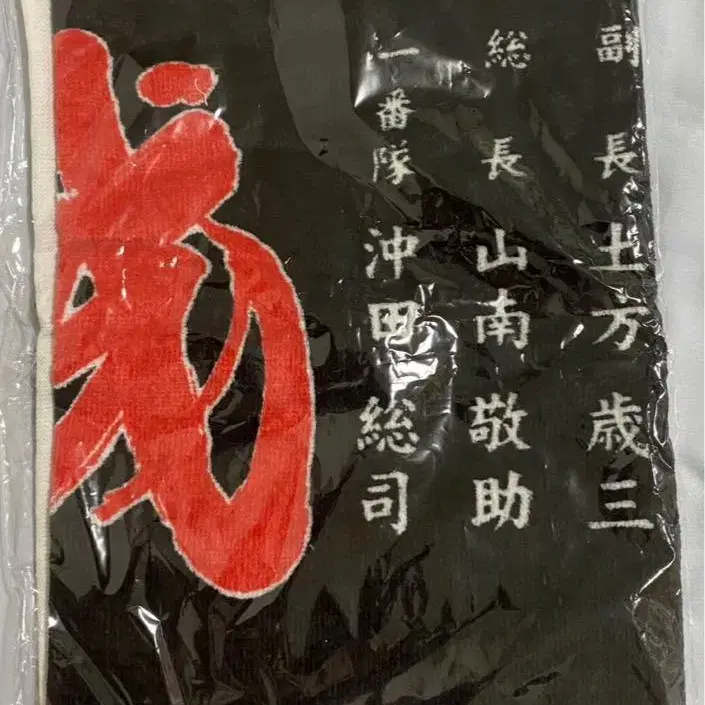 副長 土方歳三
総長 山南敬助
一番隊 沖田総司